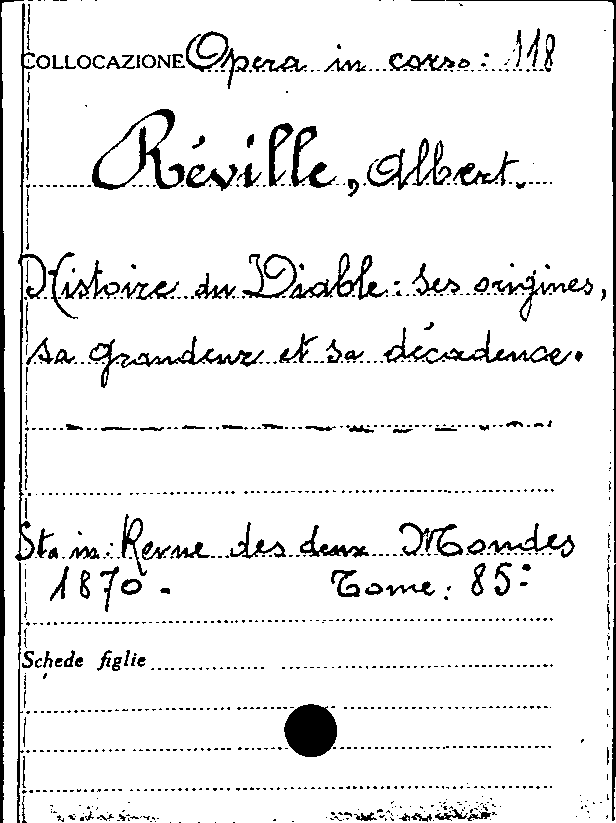 COLLOCAZIONE Opera in corso: 118
Réville, Albert.
Histoire du Diable: ses origines,
sa grandeur et sa décadence.
Sta in: Revue des deux Mondes
1870. Tome: 85:
Schede figlie